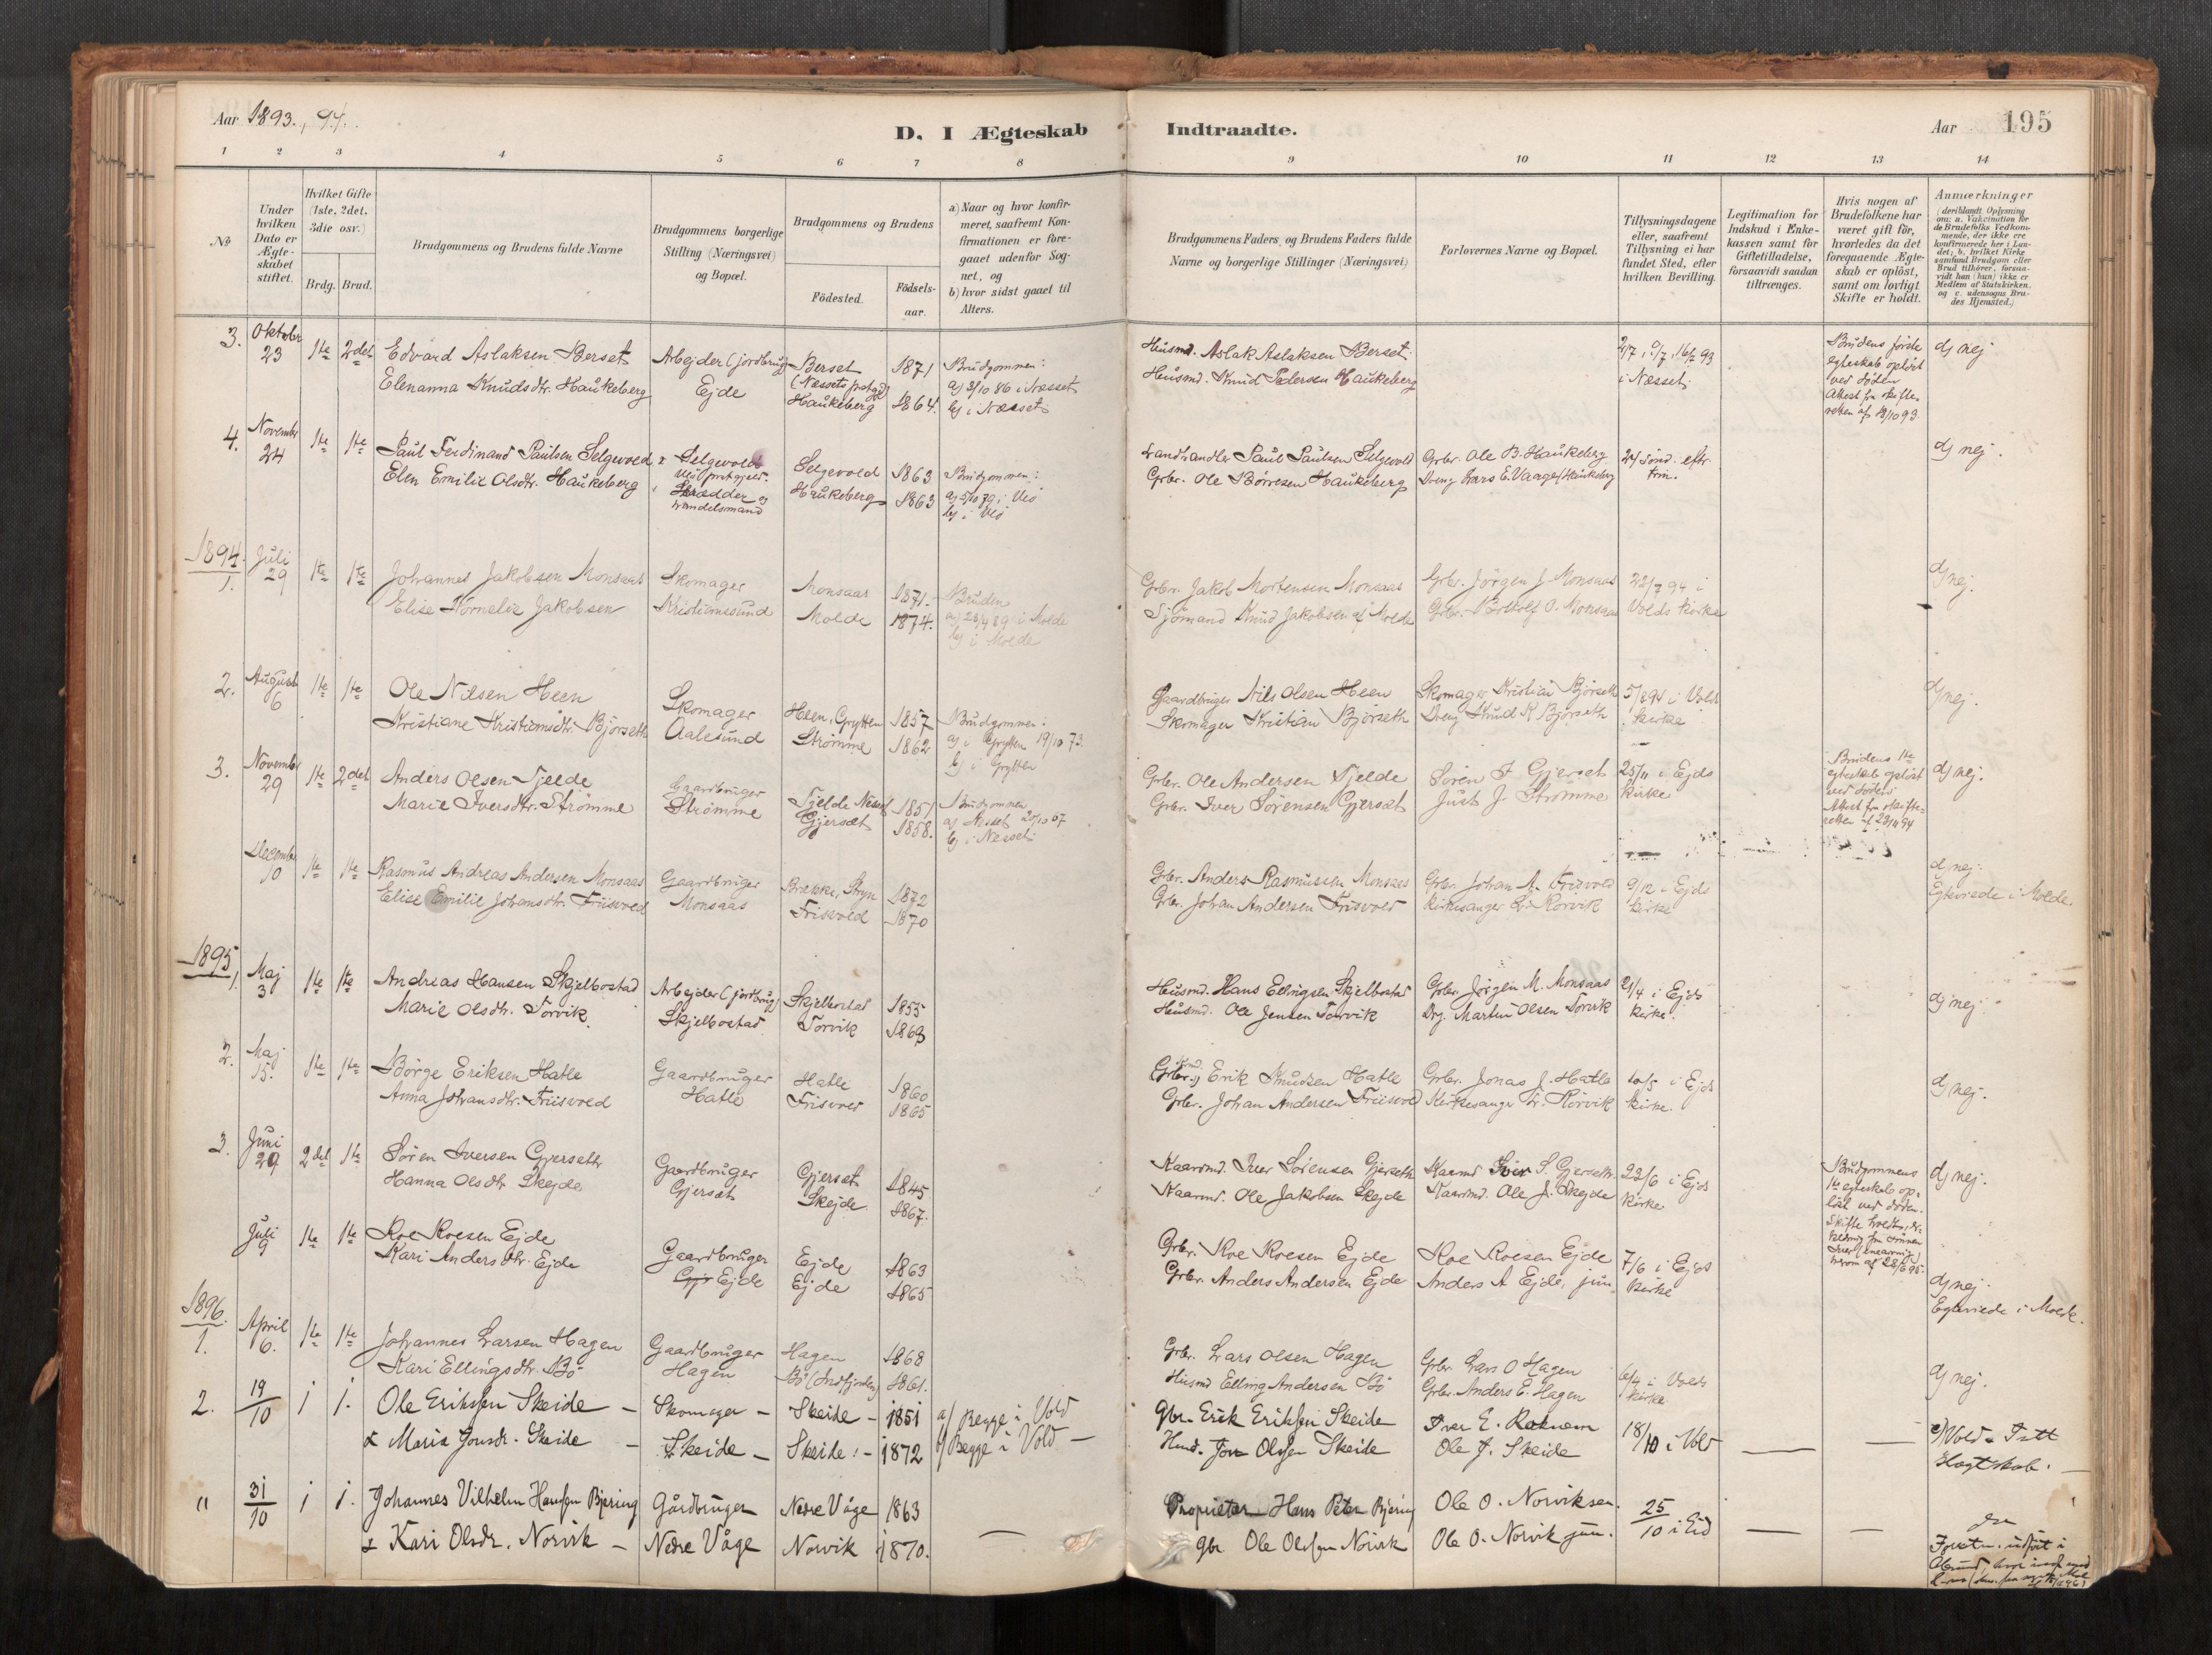 Aar 1893., 94.
D. I Ægteskab Indtraadte.
Aar 195
1 2 3 4 5 6 7 8 9 10 11 12 13 14
No
Under hvilken Dato er Ægteskabet stiftet.
Hvilket Gifte (1ste, 2det, 3die osv.)
Brdg. Brud.
Brudgommens og Brudens fulde Navne
Brudgommens borgerlige Stilling (Næringsvei) og Bopæl.
Brudgommens og Brudens
Födested.
Födselsaar.
a) Naar og hvor konfirmeret, saafremt Konfirmationen er foregaaet udenfor Sognet, og
b) hvor sidst gaaet til Alters.
Brudgommens Faders og Brudens Faders fulde Navne og borgerlige Stillinger (Næringsvei)
Forlovernes Navne og Bopæl.
Tillysningsdagene eller, saafremt Tillysning ei har fundet Sted, efter hvilken Bevilling.
Legitimation for Indskud i Enkekassen samt for Giftetilladelse, forsaavidt saadan tiltrænges.
Hvis nogen af Brudefolkene har været gift för, hvorledes da det foregaaende Ægteskab er oplöst, samt om lovligt Skifte er holdt.
Anmærkninger (deriblandt Oplysning om: a. Vakcination for de Brudefolks Vedkommende, der ikke ere konfirmerede her i Landet; b. hvilket Kirkesamfund Brudgom eller Brud tilhörer, forsaavidt han (hun) ikke er Medlem af Statskirken, og c. udensogns Brudes Hjemsted.)
3. Oktober 23 1te 2det Edvard Aslaksen Berset Arbejder (jordbrug) Berset 1871 Brudgommen: Husmd. Aslak Aslaksen Berset 2/7, 9/7, 16/7 93 Brudens første d) nej
Elenanna Knudsdtr. Haukeberg Ejde (Nessets prstgd) Haukeberg 1864. a) 3/10 86 i Nesset b) i Nesset Husmd. Knud Pedersen Haukeberg i Nesset. egteskab opløst ved døden Attest fra skifteretten af 13/10 93.
4. November 24 1te 1te Paul Ferdinand Paulsen Selgevold Selgevold Veø prstgjeld. Selgevold 1863 Brudgommen: Landhandler Paul Paulsen Selgevold Grbr. Ole B. Haukeberg 24 sønd. eftr. d) nej
Elen Emilie Olsdtr. Haukeberg Skrædder og handelsmand Haukeberg 1863 a) 5/10 79 i Veø b) i Veø Grbr. Ole Børresen Haukeberg Dreng Lars E. Vaage/Haukeberg trin.
1894.
1. Juli 29 1te 1te Johannes Jakobsen Monsaas Skomager Monsaas 1871. Bruden Grbr. Jakob Mortensen Monsaas Grbr. Jörgen J. Monsaas 22/7 94 i d) nej.
Elise Kornelie Jakobsen Kristianssund Molde 1874. a) 28/4 89 i Molde b) i Molde Sjømand Knud Jakobsen af Molde Grbr. Bottolf O. Monsaas Volds kirke
2. August 6 1te 1te Ole Nilsen Heen Skomager Heen, Grytten 1857 Brudgommen: Gaardbruger Nils Olsen Heen Skomager Kristian Bjørseth 5/8 94 i Vold d) nej.
Kristiane Kristiansdtr. Bjørseth Aalesund Strømme 1862 a) i Grytten 19/10 73. b) i Grytten Skomager Kristian Bjørseth Dreng Knud K Bjørseth kirke
3. November 29 1te 2det Anders Olsen Tjelde Gaardbruger Tjelde Nesset 1851 Brudgommen Grbr. Ole Andersen Tjelde Søren I Gjerset 25/11 i Ejds Brudens 1te d) nej.
Marie Iversdtr. Strømme Strømme Gjerset 1858. a) Nesset 20/10 67 b) i Nesset. Grbr. Iver Sørensen Gjersæt Just J. Strømme kirke egteskab opløst ved døden Attest fra skifteretten af 23/11 94
December 10 1te 1te Rasmus Andreas Andersen Monsaas Gaardbruger Brekke, Stryn 1872 Grbr. Anders Rasmussen Monsaas Grbr. Johan A. Friisvold 9/12 i Ejds d) nej.
Elise Emilie Johansdtr. Friisvold Monsaas Frisvold 1870 Grbr. Johan Andersen Frisvold Kirkesanger L. Rørvik kirke Egteviede i Molde.
1895
1. Maj 3 1te 1te Andreas Hansen Skjelbostad Arbejder (jordbrug) Skjelbostad 1855 Husmd. Hans Ellingsen Skjelbostad Grbr. Jørgen M. Monsaas 21/4 i Ejds d) nej.
Marie Olsdtr. Torvik Skjelbostad Torvik 1863 Husmd. Ole Jensen Torvik Drg. Martin Olsen Torvik kirke.
2. Maj 15. 1te 1te Börge Eriksen Hatle Gaardbruger Hatle 1860 Grbr. Erik Knudsen Hatle Grbr. Jonas J. Hatle 10/5 i Ejds d) nej.
Anna Johansdtr. Friisvold Hatle Frisvold 1865 Grbr. Johan Andersen Friisvold Kirkesanger L. Rørvik kirke.
3. Juni 29 2det 1te Søren Iversen Gjerseth Gaardbruger Gjerset 1845 Kaarmd. Iver Sörensen Gjerseth Kaarmd Iver S. Gjerseth 23/6 i Ejds Brudgommens d) nej.
Hanna Olsdtr Skejde Gjerset Skejde 1867. Kaarmd. Ole Jakobsen Skejde Kaarmd. Ole J. Skejde kirke 1te egteskab opløst ved døden. Skifte
Juli 9 1te 1te Roe Roesen Ejde Gaardbruger Ejde 1863 Grbr. Roe Roesen Ejde Roe Roesen Ejde 7/6 i Ejds d) nej.
Kari Andersdtr. Ejde Ejde Ejde 1865 Grbr. Anders Andersen Ejde Anders A Ejde, jun. kirke Egteviede i Molde.
1896.
1. April 6. 1te 1te Johannes Larsen Hagen Gaardbruger Hagen 1868 Grbr. Lars Olsen Hagen Grbr Lars O Hagen 6/4 i Volds d) nej.
Kari Ellingsdtr. Bö Hagen Bö (Indfjorden) 1861. Husmd Elling Andersen Bö Grbr. Anders E. Hagen kirke.
2. 19/10 1 1. Ole Eriksen Skeide – Skomager – Skeide – 1851 a) Begge i Vold Gbr. Erik Eriksen Skeide Iver E. Roknem 18/10 i Vold — —
& Marie Jonsdr. Skeide – Skeide – Skeide – 1872 b) Begge i Vold – Hmd. Jon Olsen Skeide Ole J. Skeide
" 31/10 1 1. Johannes Vilhelm Hansen Bjering Gårdbruger Nedre Våge 1863 — Proprietær Hans Peter Bjering Ole O. Norviksen. 25/10 i Eid — —
& Kari Olsdr. Norvik – Nedre Våge Norvik 1870. gbr Ole Olsen Norvik Ole O. Norvik jun.